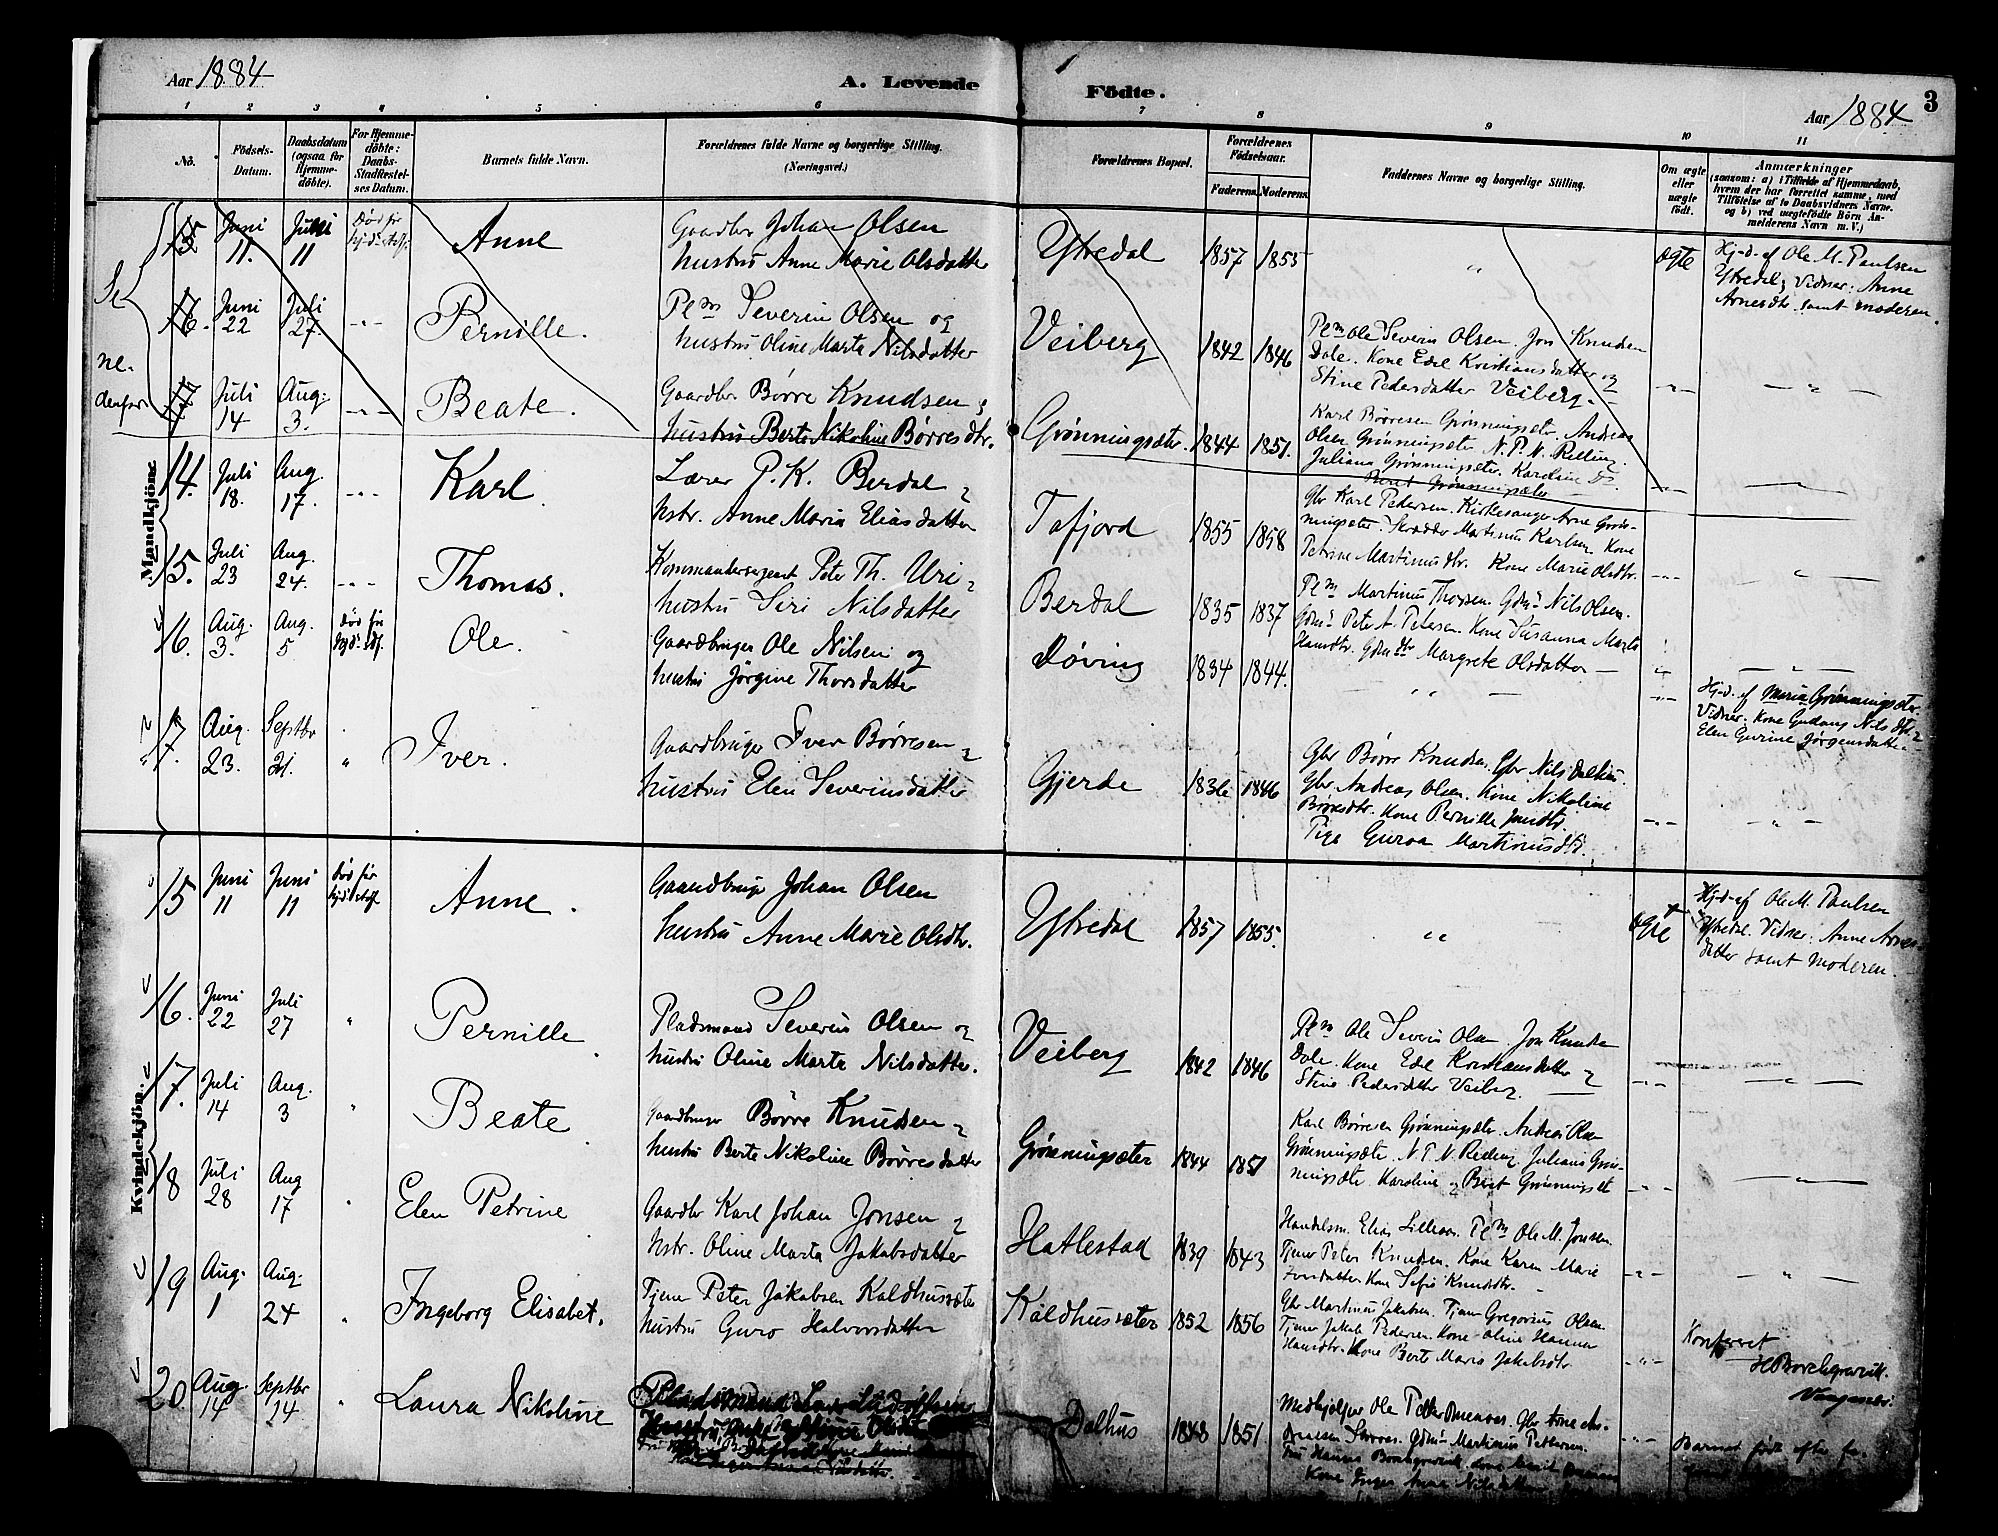 Aar 1884 A. Levende
Födte. Aar 1884 3
1 2 3 4 5 6 7 8 9 10 11
No.
Födsels-
Datum.
Daabsdatum
(ogsaa for
Hjemme-
döbte).
For Hjemme-
döbte:
Daabs-
Stadfæstel-
ses Datum.
Barnets fulde Navn.
Forældrenes fulde Navne og borgerlige Stilling.
(Næringsvei.)
Forældrenes Bopæl.
Forældrenes
Födselsaar.
Faderens. Moderens.
Faddernes Navne og borgerlige Stilling.
Om ægte
eller
uægte
födt.
Anmærkninger
(saasom: a) i Tilfælde af Hjemmedaab,
hvem der har forrettet samme, med
Tilföielse af to Daabsvidners Navne.
og b) ved uægtefödte Börn An-
melderens Navn m. V.)
Se
ne-
denfor.
15 Juni 11. Juni 11 Död før Anne
Gaardbr Johan Olsen
hustru Anne Marie Olsdatter
Ytredal 1857 1855 " ægte
Hj-d. af Ole M. Paulsen
Ytredal; Vidner: Anne
Arnesdtr. samt moderen.
16. Juni 22 Juli 27. -"- Pernille.
Plm Severin Olsen og
hustru Oline Marta Nilsdatter
Veiberg 1842 1846
Plm Ole Severin Olsen. Jon Knudsen
Dale. Kone Edel Kristiansdatter og
Stine Pedersdatter Veiberg. -"-
17 Juli 14 Aug. 3. -"- Beate.
Gaardbr. Børre Knudsen &
hustru Berte Nikoline Børresdtr.
Grønningsæter. 1844 1851.
Karl Børresen Grønningsæter. Andreas
Olsen Grønningsæter N. P. N. Relling.
Juliane Grønningsæter. Karoline Do.
Beret Grønningsæter -"-
Mandkjön.
14. Juli 18. Aug. 17. -"- Karl.
Lærer P. K. Berdal &
hstr. Anne Maria Eliasdatter
Tafjord 1855 1858
Gbr Karl Pedersen. Kirkesanger Arne Grøn-
ningsæter. Skrædder Martinus Karlsen. Kone
Petrine Martinusdtr. Kone Marie Olsdtr. -"-
15. Juli 23 Aug. 24. -"- Thomas.
Kommandersergeant Peter Th. Uri &
hustru Siri Nilsdatter
Berdal 1835 1837
Plm Martinus Thorsen. Gdm Nils Olsen.
Gdm Peter A. Petersen. Kone Susanna Marta
Hansdtr. Gdmdtr Margrete Olsdatter
16. Aug. 3. Aug. 5 Död før Ole.
Gaardbruger Ole Nilsen og
hustru Jørgine Thorsdatter
Døving 1834 1844. -"-
Hj-d. af Maria Grønningsæter.
Vidner: Kone Gudany Nilsdtr &
Elen Gurine Jørgensdatter
17. Aug. 23. Septbr 21. " Iver.
Gaardbruger Iver Børresen &
hustru Elen Severinsdatter
Gjerde 1836 1846
Gbr Børre Knudsen. Gbr Nils Dalhus.
Gbr. Andreas Olsen. Kone Nikoline
Børresdtr. Kone Pernille Jonsdtr.
Pige Guroa Martinusdtr. -"-
Kvindekjön.
15 Juni 11 Juni 11 Död før Anne.
Gaardbruger Johan Olsen
hustru Anne Marie Olsdtr.
Ytredal 1857 1855. " ægte
Hj-d-af Ole M. Paulsen
Ytredal. Vidner: Anne Arnes-
datter samt moderen.
16. Juni 22 Juli 27 " Pernille
Pladsmand Severin Olsen og
hustru Oline Marta Nilsdatter.
Veiberg 1842 1846
Plm Ole Severin Olsen Jon Knudsen
Dale. Kone Edel Kristiansdatter &
Stine Pedersdatter Veiberg. -"-
17. Juli 14 Aug. 3 " Beate
Gaardbruger Børre Knudsen &
hustru Berte Nikoline Børresdatter
Grønningsæter 1844 1851
Karl Børresen Grønningsæter. Andreas Olsen
Grønningsæter N. P. N. Relling Juliane Grøn-
ningsæter Karoline og Beret Grønningsæt -"-
18 Juli 28 Aug 17 " Elen Petrine
Gaardbr Karl Johan Jonsen &
hstr. Oline Marta Jakobsdatter
Hatlestad 1839 1843
Handelsm. Elias Lillaas. Plm Ole M. Jonsen.
Tjener Peter Knudsen. Kone Karen Marie
Iversdatter Kone Sofie Knudsdtr. -"-
19 Aug. 1 Aug. 24 " Ingeborg Elisabet.
Tjener Peter Jakobsen Kaldhusæter
hustru Guro Halvorsdatter
Kaldhusæter 1852 1856
Gbr Martinus Jakobsen. Tjener Gregorius Olsen.
Tjener Jakob Pedersen. Kone Oline Hanna
Hansdtr. Kone Berte Maria Jakobsdtr. -"-
Konfereret
20. Aug. 14 Septbr 24 " Laura Nikoline
Dalhus 1848 1851
Medhjelper Ole Petter
Martinus Pettersen.
Kone Inger Anna Nilsdatter
Barnet født efter